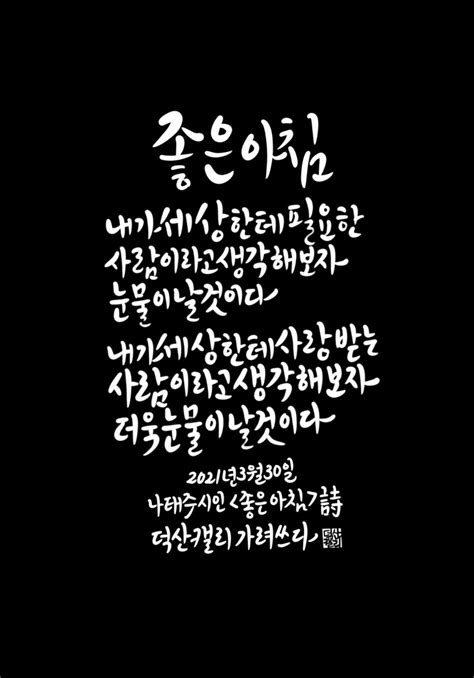 좋은아침
내가세상한테필요한
사람이라고생각해보자
눈물이날것이다
내가세상한테사랑받는
사람이라고생각해보자
더욱눈물이날것이다
2021년3월30일
나태주시인<좋은아침>詩
덕산캘리가려쓰다